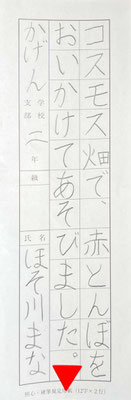 コスモス畑で、赤とんぼを
おいかけてあそびました。
かげん 学校 支部 二年 組 氏名 ほそ川まな
(12字×2行)